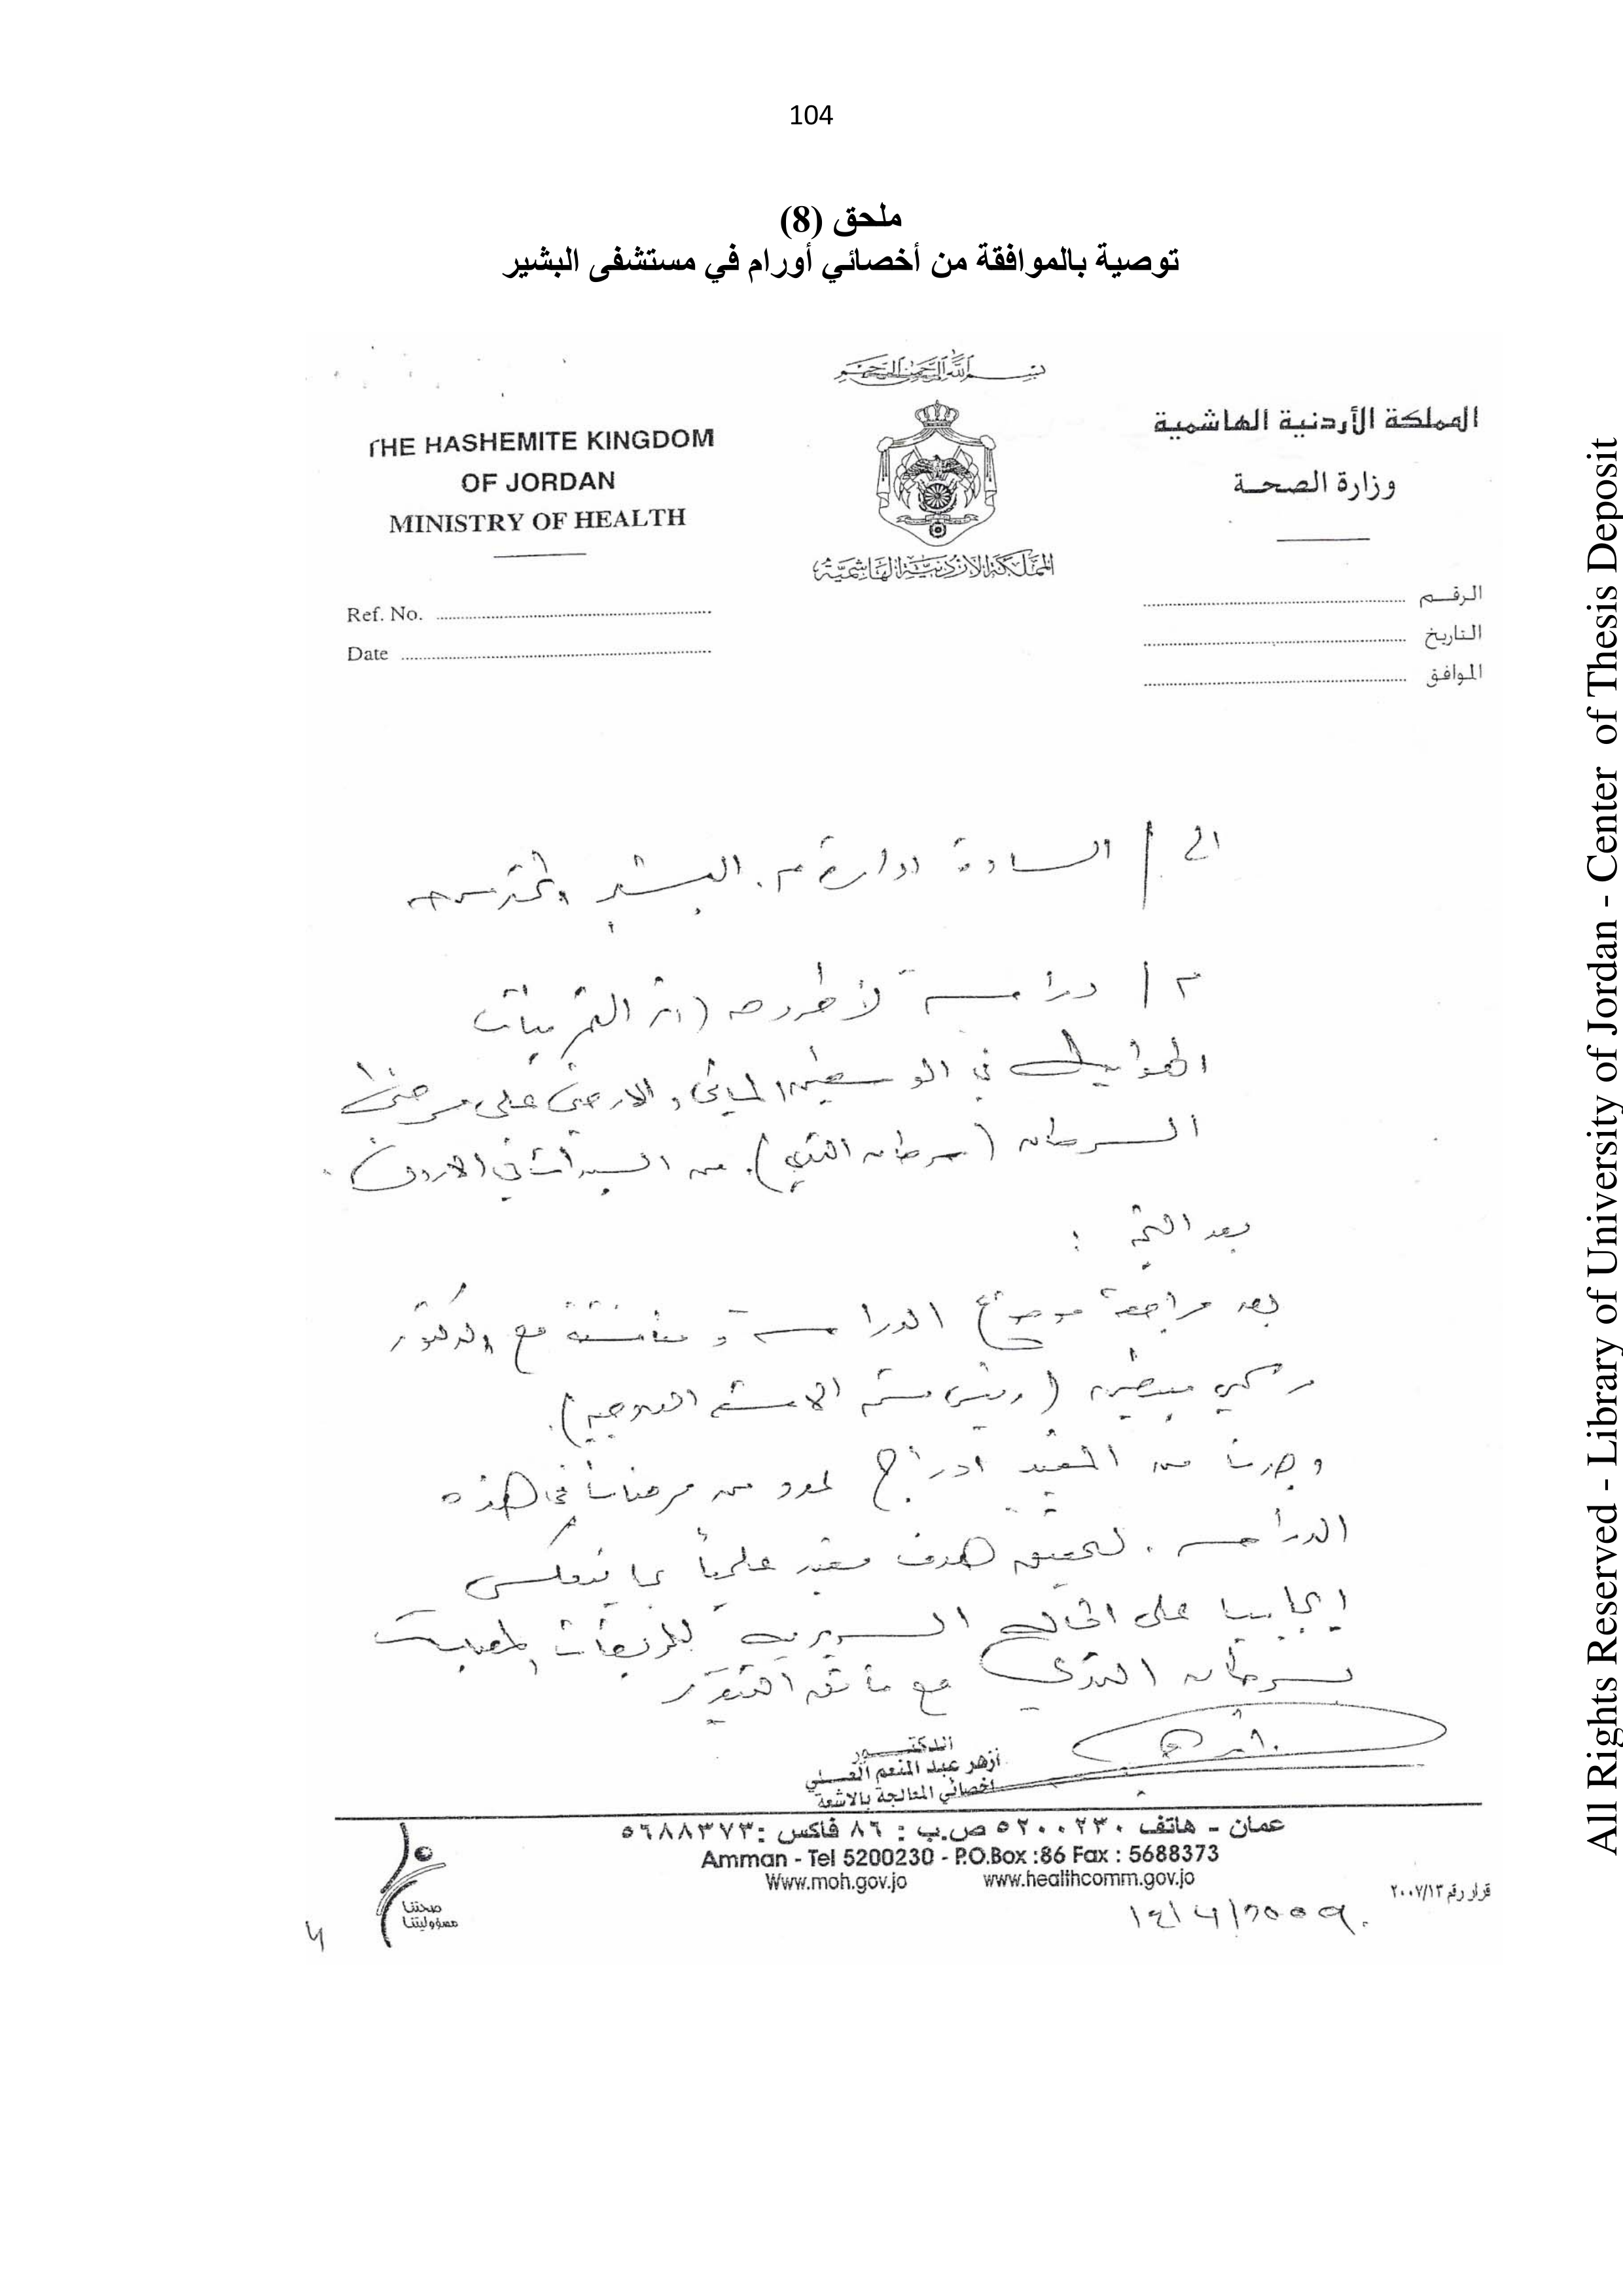 104
ملحق (8)
توصية بالموافقة من أخصائي أورام في مستشفى البشير
بسم الله الرحمن الرحيم
THE HASHEMITE KINGDOM
OF JORDAN
MINISTRY OF HEALTH
المملكة الأردنية الهاشمية
المملكة الأردنية الهاشمية
وزارة الصحة
Ref. No.
Date
الرقم
التاريخ
الموافق
الى / السادة ادارة م. البشير المحترمين
م / دراسة لأطروحة (اثر التمرينات
الهوائية في الوسطين المائي والارضي على مرضى
السرطان (سرطان الثدي). من السيدات في الاردن.
بعد التحية :
بعد مراجعة موضوع الدراسة و مناقشته مع الدكتور
(رئيس قسم الاشعة العلاجية).
وجدنا من المفيد ادراج عدد من مريضاتنا في هذه
الدراسة. لتحقيق هدف مفيد علمياً بما ينعكس
ايجابيا على الحالة السريرية للمريضات المصابات
بسرطان الثدي مع فائق التقدير
الدكتور
أزهر عبد المنعم
اخصائي المعالجة بالاشعة
عمان - هاتف ٥٢٠٠٢٣٠ ص.ب : ٨٦ فاكس :٥٦٨٨٣٧٣
Amman - Tel 5200230 - P.O.Box :86 Fax : 5688373
Www.moh.gov.jo www.healthcomm.gov.jo
قرار رقم ٢٠٠٧/١٣
صحتنا
مسؤوليتنا
All Rights Reserved - Library of University of Jordan - Center of Thesis Deposit